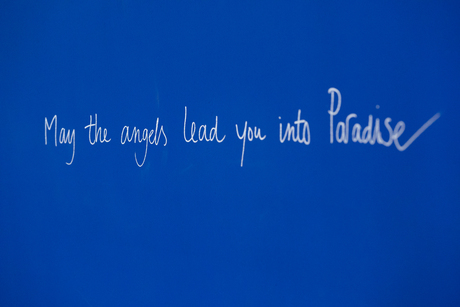 May the angels lead you into Paradise